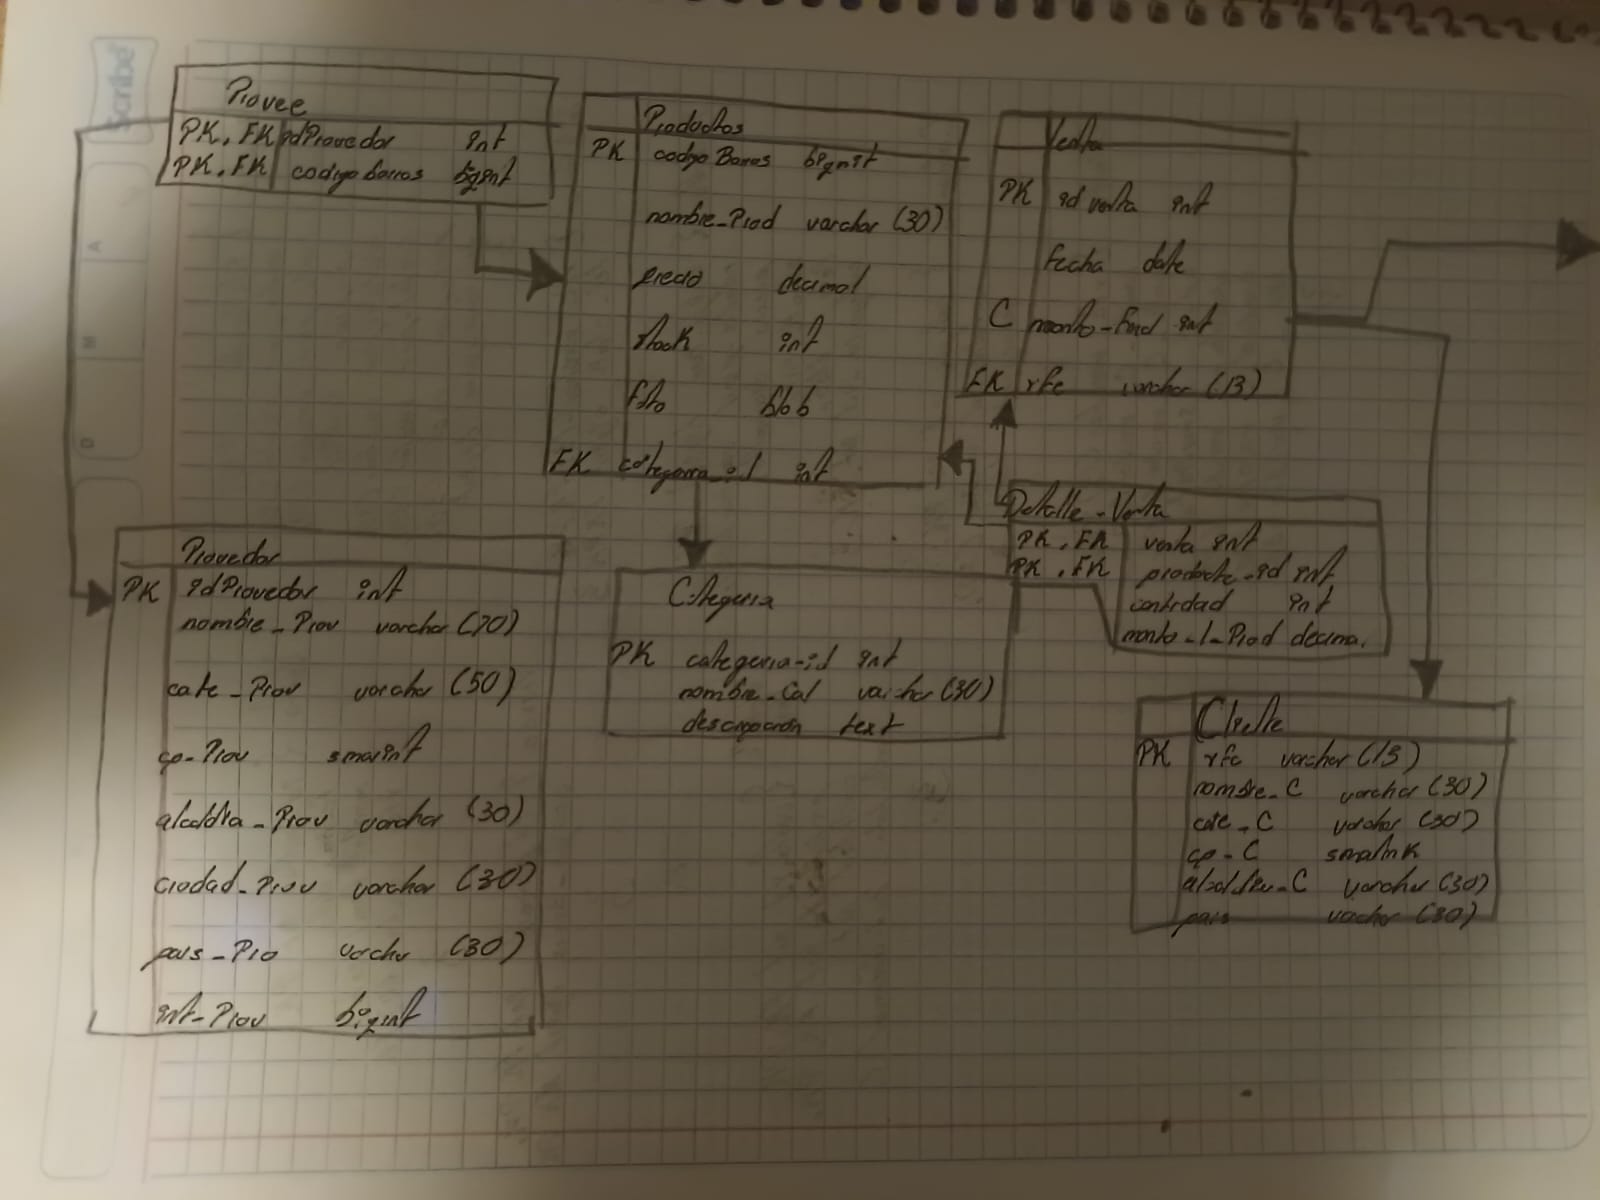 Scribe
Provee
PK, FK idProvedor int
PK, FK codigo barras bigint
Productos
PK codgo Barras bigint
nombre_Prod varchar (30)
precio decimal
stock int
foto blob
FK categoria_id int
Venta
PK id venta int
fecha date
C monto_Final int
FK rfc varchar (13)
Detalle_Venta
PK, FK venta int
PK, FK producto_id int
cantidad int
monto_1_Prod decima.
Provedor
PK idProvedor int
nombre_Prov varchar (20)
calle_Prov varchar (50)
cp_Prov smarint
alcaldia_Prov varchar (30)
ciudad_Prov varchar (30)
pais_Pro varchar (30)
int_Prov bigint
Categoria
PK categoria_id int
nombre_Cat varchar (30)
descripcion text
Cliente
PK rfc varchar (13)
nombre_C varchar (30)
calle_C varchar (30)
cp_C
alcaldia_C varchar (30)
pais varchar (30)